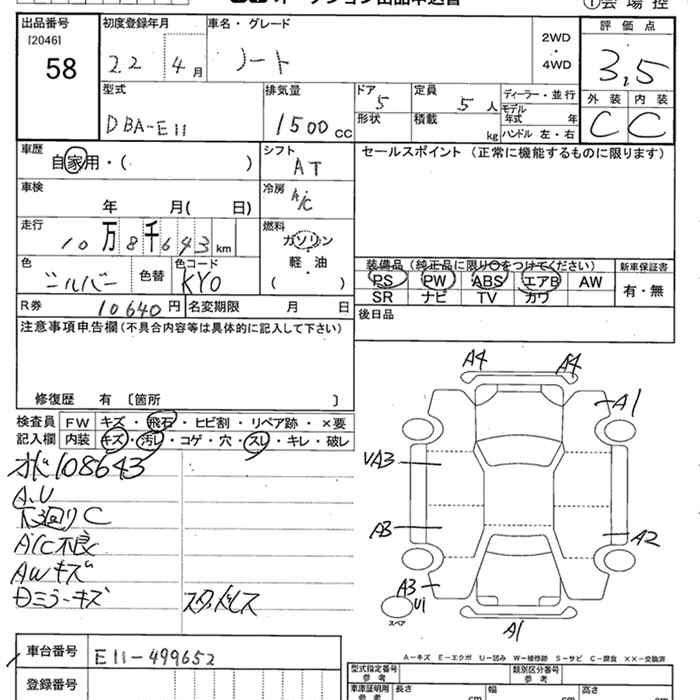 オークション出品申込書
①会場控
出品番号 初度登録年月 車名・グレード 評価点
[2046]
58 22 4月 ノート 2WD・4WD 3.5
外装 内装
C C
型式 排気量 ドア 定員 ディーラー・並行
DBA-E11 1500cc 5 5人 モデル年式 年
形状 積載 kg ハンドル 左・右
車歴 シフト セールスポイント (正常に機能するものに限ります)
自家用・( ) AT
車検 冷房
年 月( 日) A/C
走行 燃料
10万8千643km ガソリン
軽・油
( )
色 色替 色コード
シルバー KY0
装備品 (純正品に限り○をつけてください) 新車保証書
PS PW ABS エアB AW 有・無
SR ナビ TV カワ
R券 10640円 名変期限 月 日
後日品
注意事項申告欄 (不具合内容等は具体的に記入して下さい)
修復歴 有 〔箇所 〕
検査員 FW キズ・飛石・ヒビ割・リペア跡・×要
記入欄 内装 キズ・汚レ・コゲ・穴・スレ・キレ・破レ
108643
A.U
下廻りC
A/C不良
AWキズ
Dミラーキズ
スタッドレス
A4 A4
A1
VA3
A3 A2
A3
U1
スペア
A1
A－キズ E－エクボ U－凹み W－補修跡 S－サビ C－腐食 ××－交換済
車台番号 E11-499652
登録番号
型式指定番号 参考 類別区分番号 参考
車庫証明用 参考 長さ cm 幅 cm 高さ cm